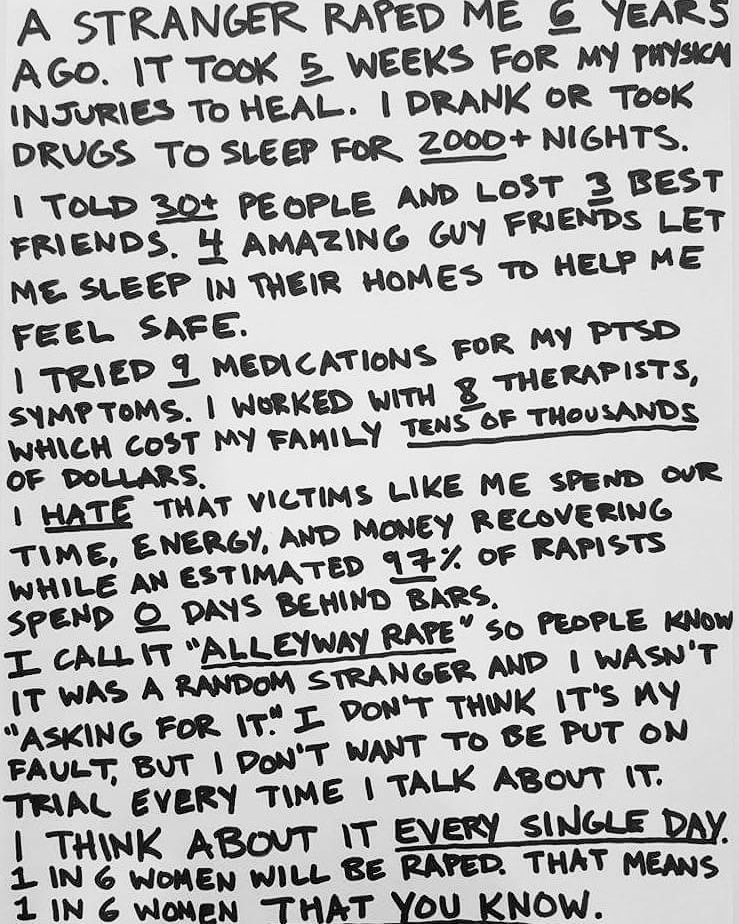 A STRANGER RAPED ME 6 YEARS
AGO. IT TOOK 5 WEEKS FOR MY PHYSICAL
INJURIES TO HEAL. I DRANK OR TOOK
DRUGS TO SLEEP FOR 2000+ NIGHTS.
I TOLD 30+ PEOPLE AND LOST 3 BEST
FRIENDS. 4 AMAZING GUY FRIENDS LET
ME SLEEP IN THEIR HOMES TO HELP ME
FEEL SAFE.
I TRIED 9 MEDICATIONS FOR MY PTSD
SYMPTOMS. I WORKED WITH 8 THERAPISTS,
WHICH COST MY FAMILY TENS OF THOUSANDS
OF DOLLARS.
I HATE THAT VICTIMS LIKE ME SPEND OUR
TIME, ENERGY, AND MONEY RECOVERING
WHILE AN ESTIMATED 97% OF RAPISTS
SPEND 0 DAYS BEHIND BARS.
I CALL IT "ALLEYWAY RAPE" SO PEOPLE KNOW
IT WAS A RANDOM STRANGER AND I WASN'T
"ASKING FOR IT." I DON'T THINK IT'S MY
FAULT, BUT I DON'T WANT TO BE PUT ON
TRIAL EVERY TIME I TALK ABOUT IT.
I THINK ABOUT IT EVERY SINGLE DAY.
1 IN 6 WOMEN WILL BE RAPED. THAT MEANS
1 IN 6 WOMEN THAT YOU KNOW.